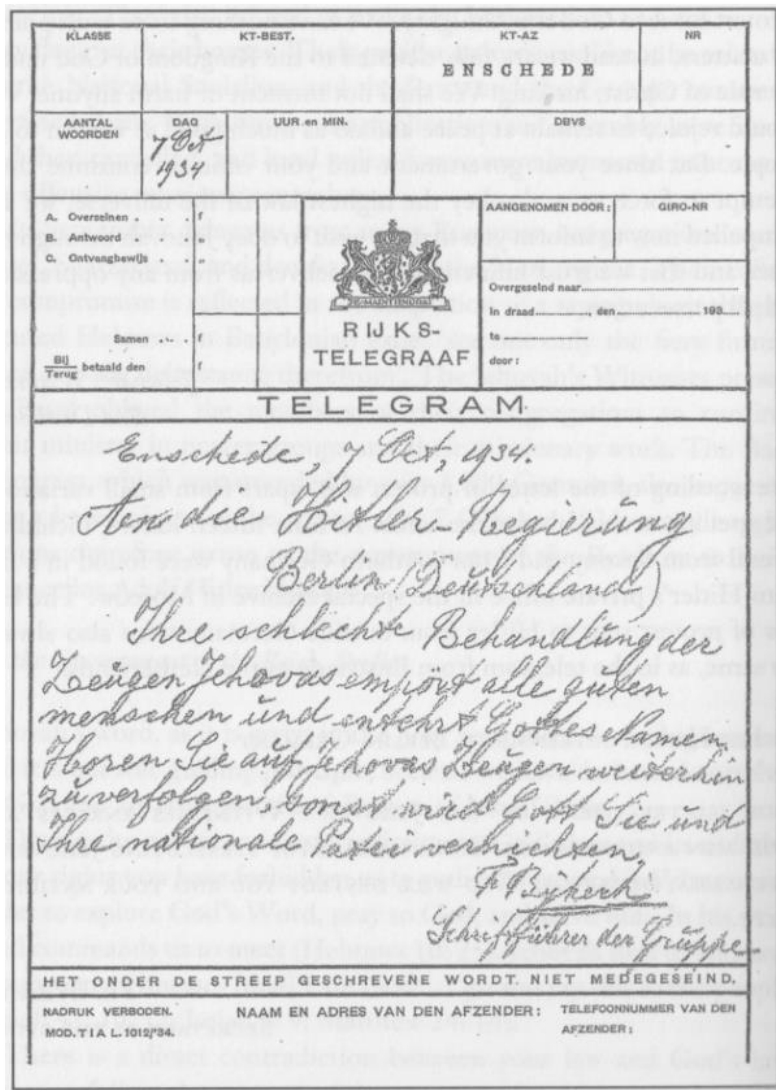 KLASSE
KT-BEST.
KT-AZ
NR
ENSCHEDE
AANTAL WOORDEN
DAG
UUR en MIN.
DBVS
7 Oct
1934
A. Overseinen . . f
B. Antwoord . . „
C. Ontvangbewijs . „
Samen
Bij
Terug betaald den
JE MAINTIENDRAI
RIJKS-
TELEGRAAF
AANGENOMEN DOOR:
GIRO-NR
Overgeseind naar
In draad , den 193
te
door :
TELEGRAM
Enschede, 7 Oct, 1934.
An die Hitler-Regierung
Berlin / Deutschland
Ihre schlechte Behandlung der
Zeugen Jehovas empört alle guten
menschen und entehrt Gottes Namen.
Horen Sie auf Jehovas Zeugen weiterhin
zu verfolgen, sonst wird Gott Sie und
Ihre nationale Partei vernichten,
Schriftführer der Gruppe
HET ONDER DE STREEP GESCHREVENE WORDT NIET MEDEGESEIND.
NADRUK VERBODEN.
MOD. T I A L. 1012/'34.
NAAM EN ADRES VAN DEN AFZENDER :
TELEFOONNUMMER VAN DEN
AFZENDER :